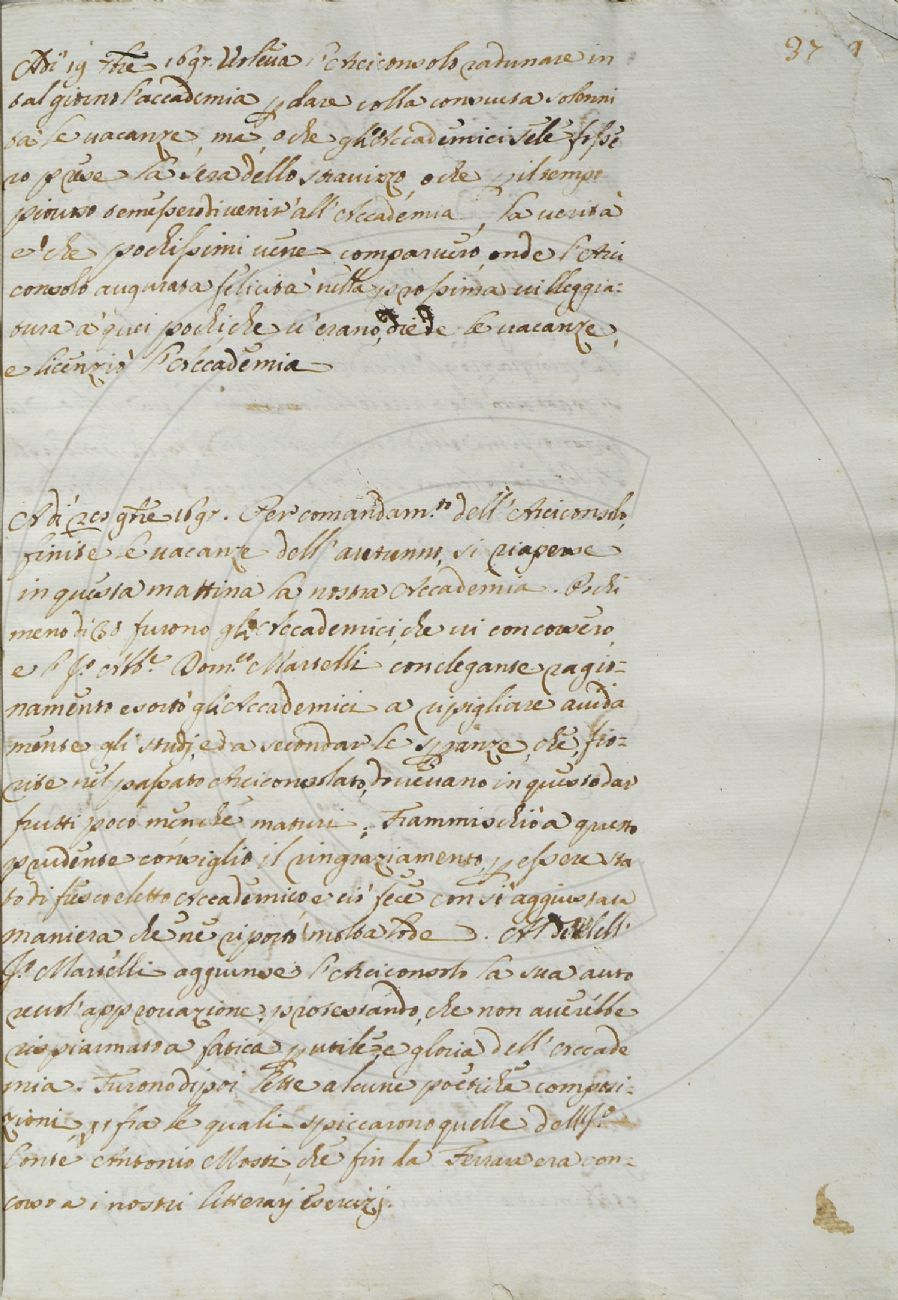 37
Adì 19 7bre 1697. Voleva l'Arciconsolo radunare in
tal giorno l'accademia p dare colla consueta solenni
tà le vacanze, ma, o che gli Accademici se le fosse
ro prese la sera dello stravizzo, o che p il tempo
piovoso temessero di venir' all'Accademia, la verità
e' che pochissimi vene comparvero, onde l'Arci
consolo augurata felicità nella prossima villeggia-
tura a' quei pochi, che v'erano, diede le vacanze,
e licenziò l'Accademia
Adì 9bre 1697. Per comandam.to dell'Arciconsolo,
finite le vacanze dell'autunno, si riaperse
in questa mattina la nostra Accademia. Pochi
meno di 30 furono gli Accademici, che vi concorsero,
e l' Ab.e Dom.co Martelli con elegante ragio-
namento esortò gli Accademici a ripigliare avida
mente gli studj, ed a secondar le speranze, che, fio-
rite nel passato Arciconsolato, dovevano in questo dar
frutti poco men che maturi. Frammischiò a questo
prudente consiglio il ringraziamento p essere sta
to di fresco eletto Accademico, e ciò fece con sì aggiustata
maniera che ne riportò molta lode. dell'
Martelli aggiunse l'Arciconsolo la sua auto
revol' approvazione, protestando, che non averebbe
risparmiata fatica p utile, e gloria dell'Accade
mia. Furono dipoi lette alcune poetiche composi-
zioni, fra le quali spiccarono quelle dell S.r
Conte Antonio Mosti, che fin da Ferrara era con-
corso a i nostri litterarj Esercizj.